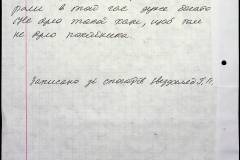 рали в той час дуже багато
Не було такої хати, щоб там
не було покійника.
Записано зі спогадів